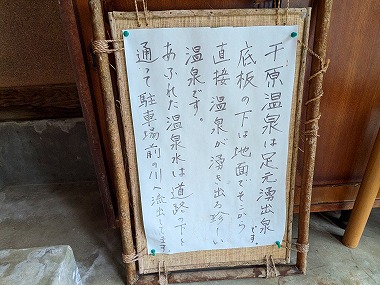 千原温泉は足元湧出泉です。
底板の下は地面でそこから
直接温泉が湧き出る珍しい
温泉です。
あふれた温泉水は道路の下を
通って駐車場前の川へ流出してます